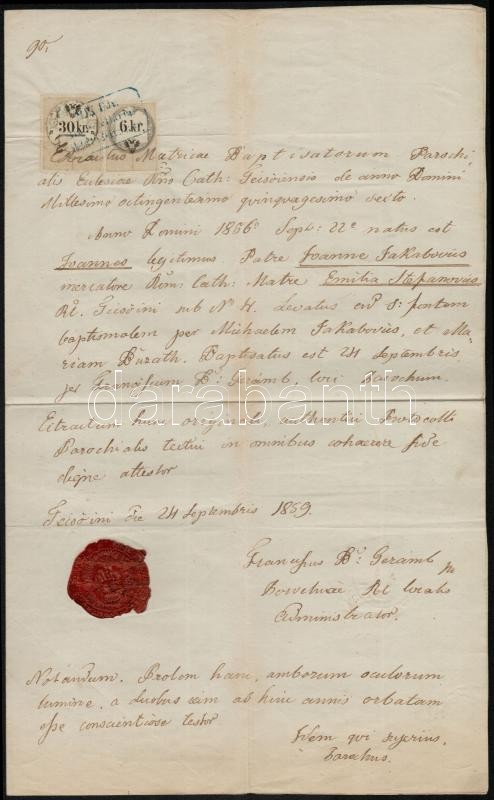 90.
30 kr. 6 kr.
Extractus Matricae Baptisatorum Parochi-
alis Eclesiae Rno Cath: de anno Domini
Millesimo octingentesimo quinquagesimo sexto.
Anno Domini 1856° Sept: 22ª natus est
Joannes legitimus Patre Joanne Jakabovics
mercatore Rom: Cath: Matre Emilia Stepanovics
Rt. sub N° 4. Levatus est s: fontem
baptismalem per Michaelem Jakabovics, et Ma-
riam Báráth. Baptisatus est 24 Septembris
per Franciscum B: Geramb, loci Parochum.
darabanth
Extractum hunc originali, authentici Protocolli
Parochialis textui in omnibus cohaerere fide
digne attestor
die 24 Septembris 1859.
Franciscus B: Geramb
Rt localis
Administrator.
Notandum. Prolem hanc, amborum oculorum
lumine, a duobus jam ab hinc annis orbatam
esse conscientiose testor
Idem qui superius,
Parochus.